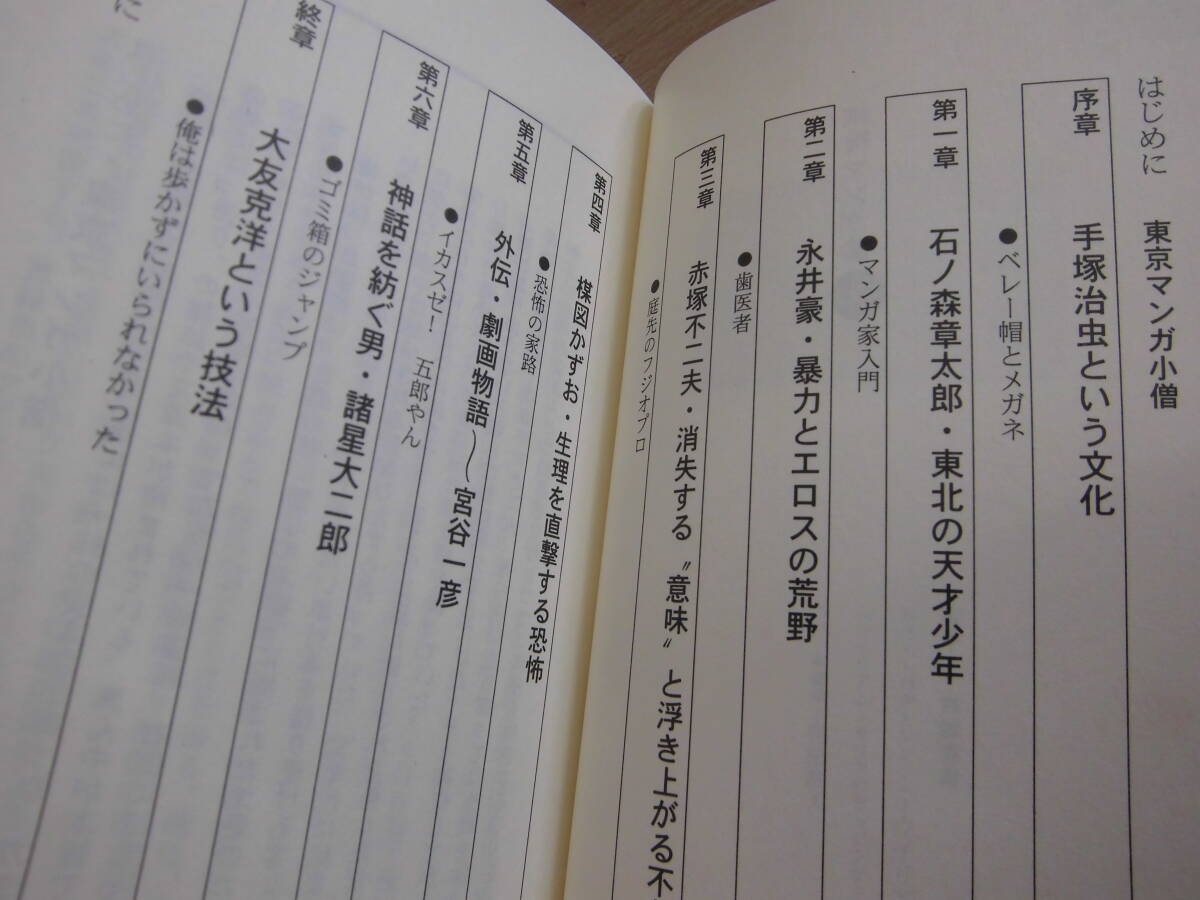 はじめに　東京マンガ小僧
序章　手塚治虫という文化
●ベレー帽とメガネ
第一章　石ノ森章太郎・東北の天才少年
●マンガ家入門
第二章　永井豪・暴力とエロスの荒野
●歯医者
第三章　赤塚不二夫・消失する〝意味〟と浮き上がる不
●庭先のフジオプロ
第四章　楳図かずお・生理を直撃する恐怖
●恐怖の家路
第五章　外伝・劇画物語〜宮谷一彦
●イカスゼ！　五郎やん
第六章　神話を紡ぐ男・諸星大二郎
●ゴミ箱のジャンプ
終章　大友克洋という技法
●俺は歩かずにいられなかった
に